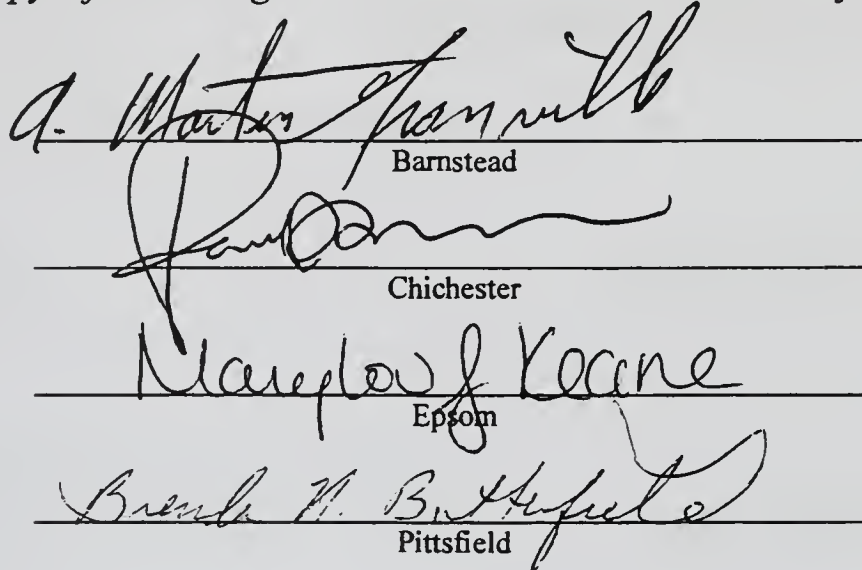 A. Martin
Barnstead
Paul
Chichester
Marylou J Keane
Epsom
Brenda N. Butterfield
Pittsfield